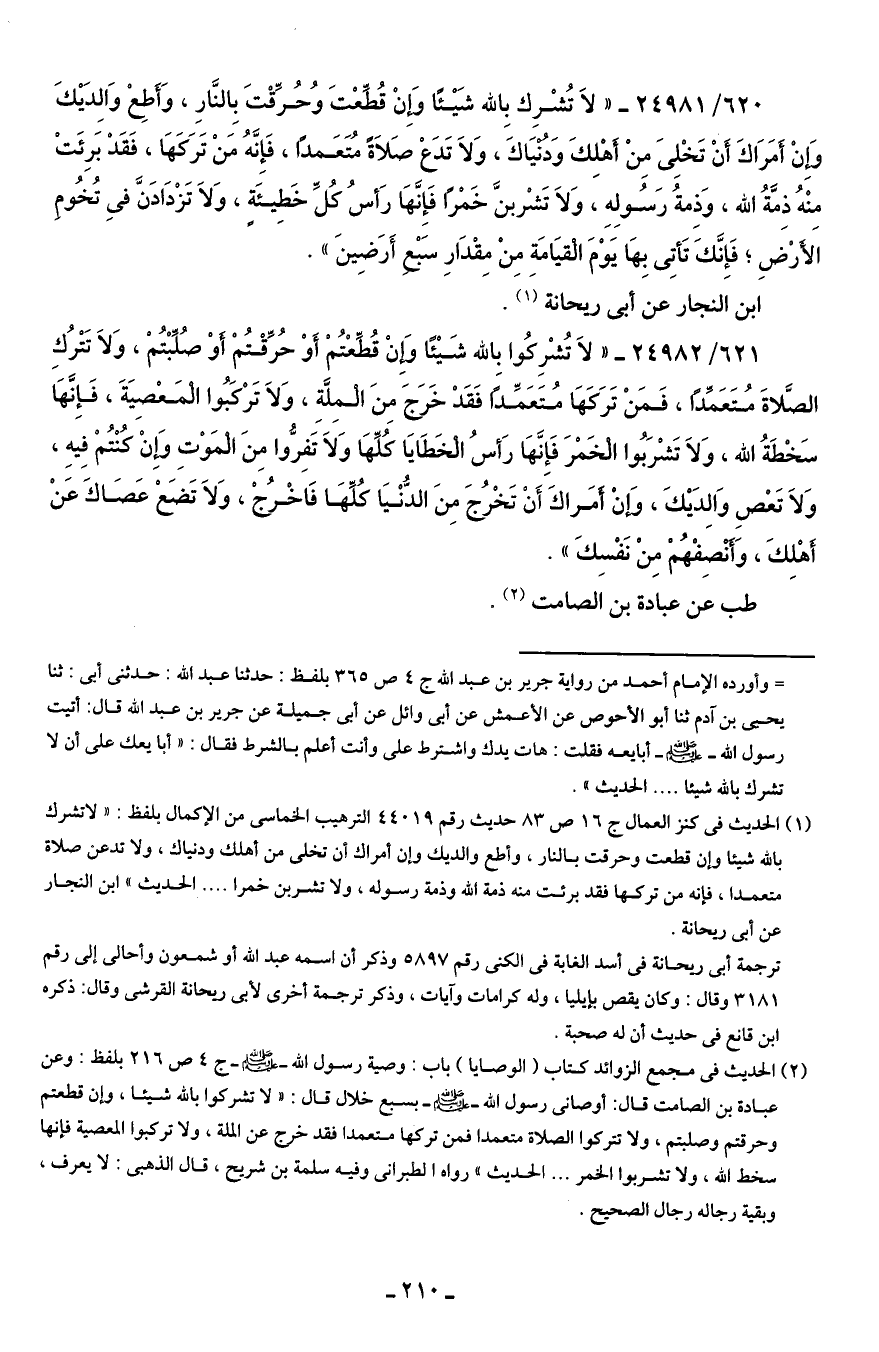 ٦٢٠/ ٢٤٩٨١ ـ « لاَ تُشْرِك بِالله شَيْئًا وَإِنْ قُطِّعْتَ وَحُرِّقْتَ بِالنَّارِ ، وَأَطِعْ وَالِدَيْكَ
وَإِنْ أَمَرَاكَ أَنْ تَخْلِىَ مِنْ أَهْلِكَ وَدُنْيَاكَ ، وَلاَ تَدَعْ صَلاَةً مُتَعَمِدًا ، فَإِنَّهُ مَنْ تَرَكَهَا ، فَقَدْ بَرِئَتْ
مِنْهُ ذِمَّةُ الله ، وَذِمةُ رَسُولِهِ ، وَلاَ تَشْرِبنَّ خَمْرًا فَإِنَّهَا رَأسُ كُلِّ خَطِيئَةٍ ، وَلاَ تَزْدَادَنَّ فِى تُخُومِ
الأَرْضِ ؛ فَإِنَّكَ تَأتِى بِهَا يَوْمَ الْقِيَامَةِ مِنْ مِقْدَارِ سَبْعِ أَرَضِينَ » .
ابن النجار عن أبى ريحانة (١) .
٦٢١/ ٢٤٩٨٢ ـ « لاَ تُشْرِكُوا بِالله شَيْئًا وَإِنْ قُطِّعْتُمْ أَوْ حُرِّقْتُمْ أَوْ صُلِّبْتُمْ ، وَلاَ تَتْرُكِ
الصَّلاَةَ مُتَعَمِّدًا ، فَمَنْ تَرَكَهَا مُتَعَمِّدًا فَقَدْ خَرَجَ مِنَ الْملَّةِ ، وَلاَ تَرْكَبُوا الْمَعْصِيَةَ ، فَإِنَّهَا
سَخْطَةُ الله ، وَلاَ تَشْرَبُوا الْخَمْرَ فَإِنَّهَا رَأسُ الْخَطَايَا كُلِّهَا وَلاَ تَفِرُّوا مِنَ الْمَوْتِ وَإِنْ كُنْتُمْ فِيهِ ،
وَلاَ تَعْصِ وَالِدَيْكَ ، وَإِنْ أَمَرَاكَ أَنْ تَخْرُجَ مِنَ الدُّنْيَا كُلِّهَا فَاخْرُجْ ، وَلاَ تَضَعْ عَصَاكَ عَنْ
أَهْلِكَ ، وَأَنْصِفْهُمْ مِنْ نَفْسِكَ » .
طب عن عبادة بن الصامت (٢) .
= وأورده الإمام أحمد من رواية جرير بن عبد الله ج ٤ ص ٣٦٥ بلفظ : حدثنا عبد الله : حدثنى أبى : ثنا
يحيى بن آدم ثنا أبو الأحوص عن الأعمش عن أبى وائل عن أبى جميلة عن جرير بن عبد الله قال: أتيت
رسول الله ـ ﷺ ـ أبايعه فقلت : هات يدك واشترط على وأنت أعلم بالشرط فقال : « أبا يعك على أن لا
تشرك بالله شيئا .... الحديث » .
(١) الحديث فى كنز العمال ج ١٦ ص ٨٣ حديث رقم ٤٤٠١٩ الترهيب الخماسى من الإكمال بلفظ : « لاتشرك
بالله شيئا وإن قطعت وحرقت بالنار ، وأطع والديك وإن أمراك أن تخلى من أهلك ودنياك ، ولا تدعن صلاة
متعمدا ، فإنه من تركها فقد برئت منه ذمة الله وذمة رسوله ، ولا تشربن خمرا .... الحديث » ابن النجار
عن أبى ريحانة .
ترجمة أبى ريحانة فى أسد الغابة فى الكنى رقم ٥٨٩٧ وذكر أن اسمه عبد الله أو شمعون وأحالى إلى رقم
٣١٨١ وقال : وكان يقص بإيليا ، وله كرامات وآيات ، وذكر ترجمة أخرى لأبى ريحانة القرشى وقال: ذكره
ابن قانع فى حديث أن له صحبة .
(٢) الحديث فى مجمع الزوائد كتاب ( الوصايا ) باب : وصية رسول الله ـ ﷺ ـ ج ٤ ص ٢١٦ بلفظ : وعن
عبادة بن الصامت قال: أوصانى رسول الله ـ ﷺ ـ بسبع خلال قال : « لا تشركوا بالله شيئا ، وإن قطعتم
وحرقتم وصلبتم ، ولا تتركوا الصلاة متعمدا فمن تركها متعمدا فقد خرج عن الملة ، ولا تركبوا المعصية فإنها
سخط الله ، ولا تشربوا الخمر ... الحديث » رواه الطبرانى وفيه سلمة بن شريح ، قال الذهبى : لا يعرف ،
وبقية رجاله رجال الصحيح .
ـ ٢١٠ ـ